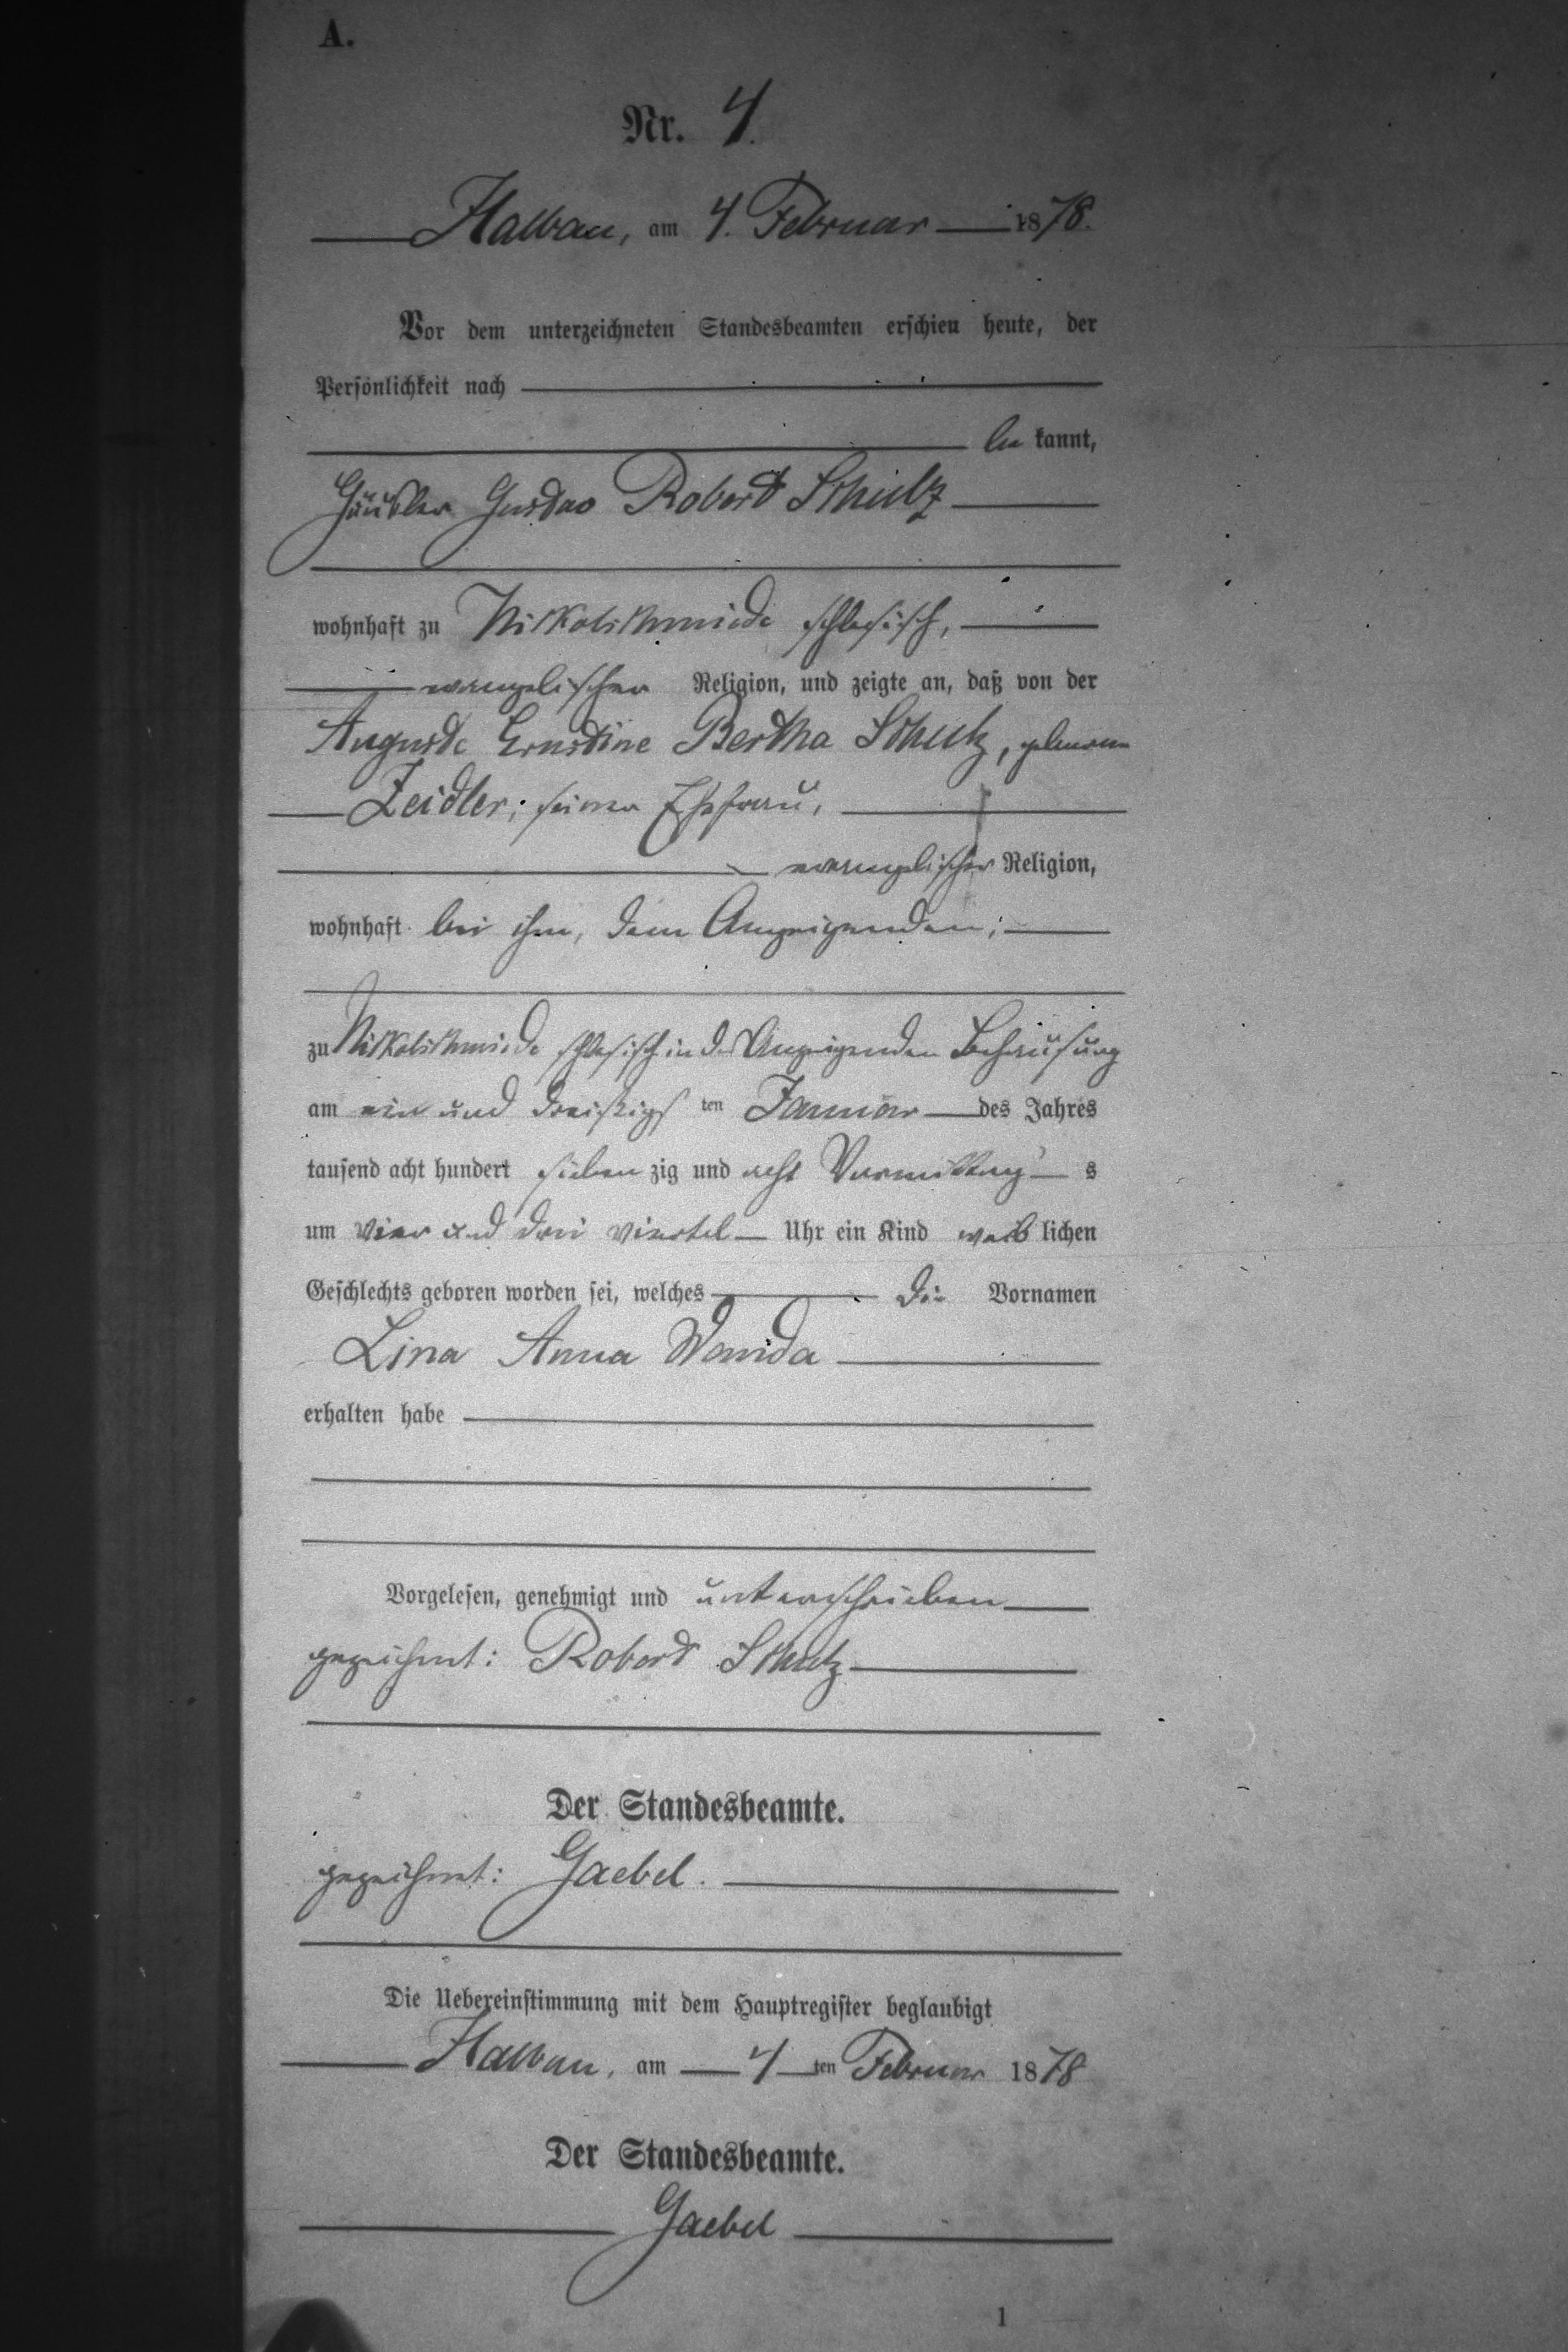 A.
Nr. 4.
Halbau, am 4. Februar 1878.
Vor dem unterzeichneten Standesbeamten erschien heute, der
Persönlichkeit nach
be kannt,
Häusler Gustav Robert Schulz
wohnhaft zu Nikolschmiede schlesisch,
evangelischer Religion, und zeigte an, daß von der
Auguste Ernstine Bertha Schulz, geborene
Zeidler, seiner Ehefrau,
evangelischer Religion,
wohnhaft bei ihm, dem Anzeigenden;
zu Nikolschmiede schlesisch in des Anzeigenden Behausung
am ein und dreißigs ten Januar des Jahres
tausend acht hundert sieben zig und acht Vormittag s
um vier und drei viertel Uhr ein Kind weib lichen
Geschlechts geboren worden sei, welches die Vornamen
Lina Anna Wanda
erhalten habe
Vorgelesen, genehmigt und unterschrieben
gezeichnet: Robert Schulz
Der Standesbeamte.
gezeichnet: Gaebel.
Die Uebereinstimmung mit dem Hauptregister beglaubigt
Halbau, am 4 ten Februar 1878
Der Standesbeamte.
Gaebel
1